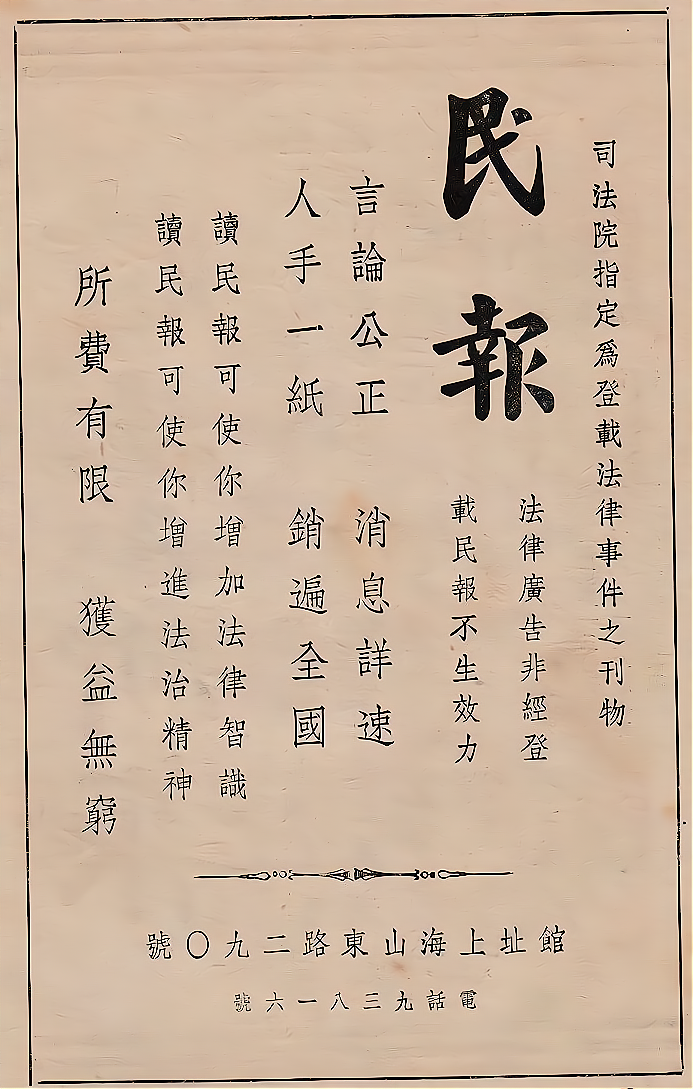 司法院指定爲登載法律事件之刊物
民報
法律廣告非經登
載民報不生效力
言論公正 消息詳速
人手一紙 銷遍全國
讀民報可使你增加法律智識
讀民報可使你增進法治精神
所費有限 獲益無窮
館址上海山東路二九〇號
電話九三八一六號